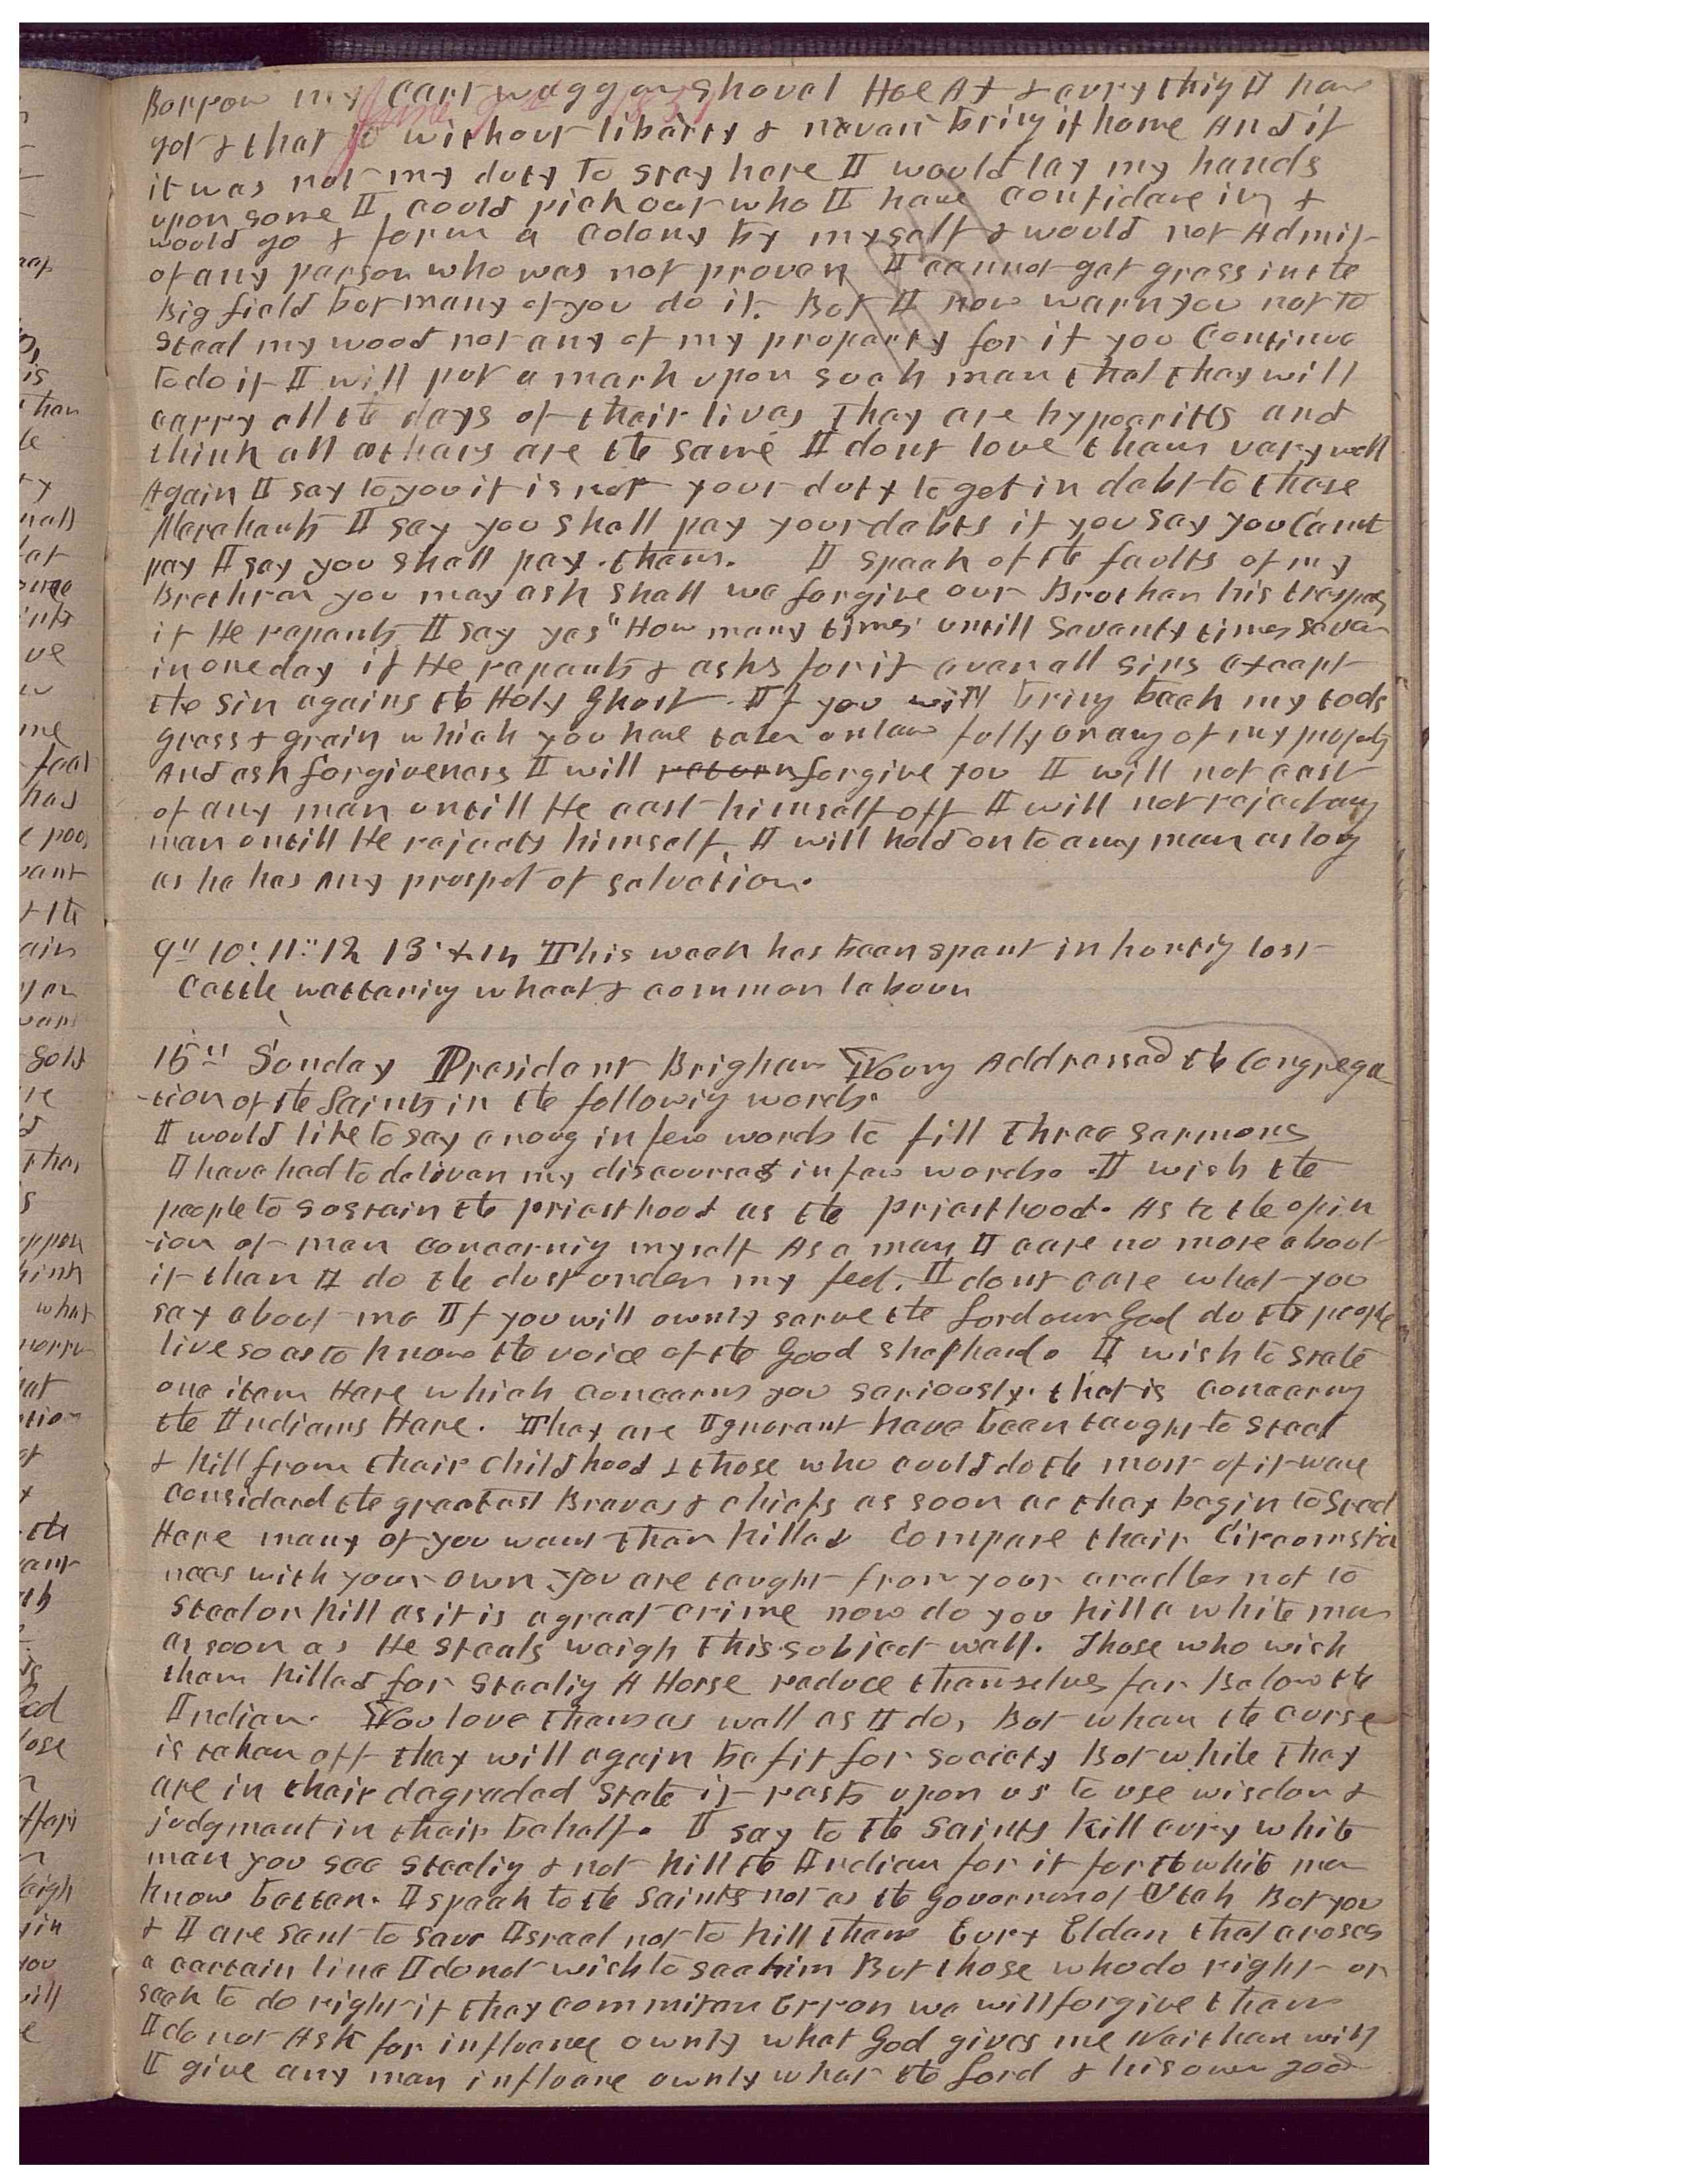 Borrow my cart waggon Shovel Hoe Ax & evry thig I have
June 8th 1851
got & that to without libarty & never bring it home And if
it was not my duty to stay here I would lay my hands
upon some I could pick out who I have confidance in &
would go & form a Colony by myself & would not Admit
of any person who was not proven I cannot get grass in the
Big field but many of you do it. But I now warn you not to
Steal my wood nor any of my property for if you Continue
to do it I will put a mark upon such man that they will
carry all the days of their lives They are hypocrites and
think all others are the same I dont love them very well
Again I say to you it is not your duty to get in debt to those
Merchants I say you shall pay your debts if you say you cant
pay I say you shall pay them. I speak of the faults of my
Brethren you may ask shall we forgive our Brother his trespas
if He repents I say yes "How many times" untill Seventy times seven
in one day if He repents & asks for it even all sins except
the sin agains the Holy Ghost. If you will bring back my tools
grass & grain which you have taken unlaw fully or any of my property
And ask forgiveness I will return forgive you I will not cast
of any man untill He cast himself off I will not reject any
man untill He rejects himself, I will hold on to any man as long
as he has any prospet of salvation.
9" 10: 11:: 12 13: & 14 This week has been spent in hunting lost
Cattle wattering wheat & common labour
15" Sunday President Brigham Young Addressed the Congrega
-tion of the Saints in the followig words.
I would like to say enoug in few words to fill three sermons
I have had to deliver my discourses in few words. I wish the
people to sustain the priesthood as the priesthood. As to the opin
-ion of men concernig myself As a man I care no more about
it than I do the dust under my feet. I dont care what you
say about me If you will ownly serve the Lord our God do the people
live so as to know the voice of the Good Shepherd. I wish to state
one item Here which concerns you seriously. that is concerng
the Indians Here. They are Ignorant have been taught to steal
& kill from their child hood & those who could do the most of it were
considerd the greatest Braves & chiefs as soon as they begin to Steal
Here many of you want them killed Compare their Circumsta
nces with your own. You are taught from your cradles not to
Steal or kill as it is a great crime now do you kill a white man
as soon as He steals weigh this subject well. Those who wish
them killed for stealig A Horse reduce themselves far Below the
Indian. You love them as well as I do, But when the curse
is taken off they will again be fit for society But while they
are in their degraded State it rests upon us to use wisdom &
judgment in their behalf. I say to the Saints kill evry white
man you see stealig & not kill the Indian for it for the white men
know better. I speak to the Saints not as the Governor of Utah But you
& I are sent to save Israel not to kill them Evry Elder that croses
a certain line I do not wish to see him But those who do right or
seek to do right if they commit an Error we will forgive them
I do not Ask for influence ownly what God gives me Neither will
I give any man influence ownly what the Lord & his own good